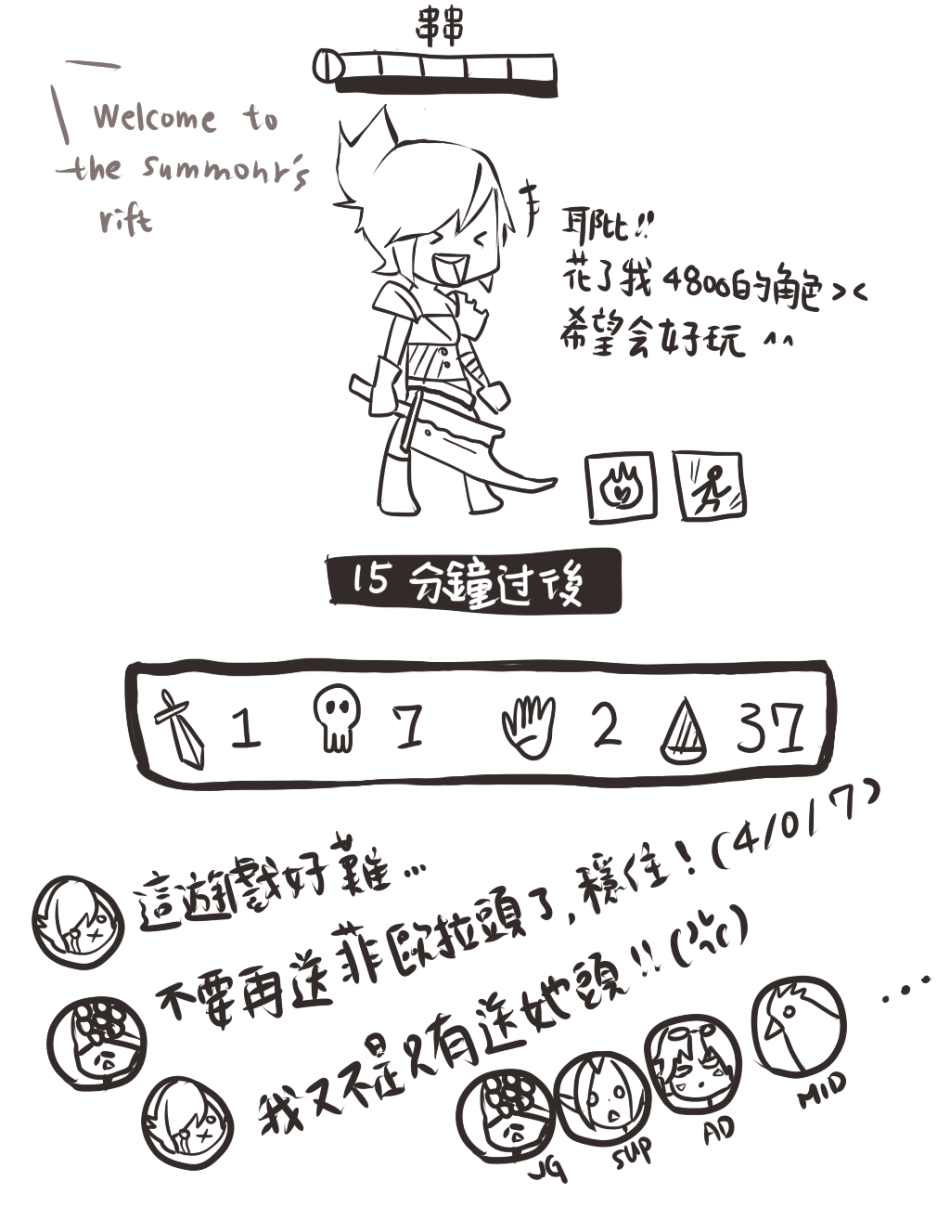 串串
Welcome to
the summonr's
rift
耶比!!
花了我4800的角色><
希望会好玩 ^^
15 分鐘过後
1 7 2 37
這遊戲好難...
不要再送菲歐拉頭了,穩住!(4/0/7)
我又不是只有送她頭!!
JG SUP AD MID
...